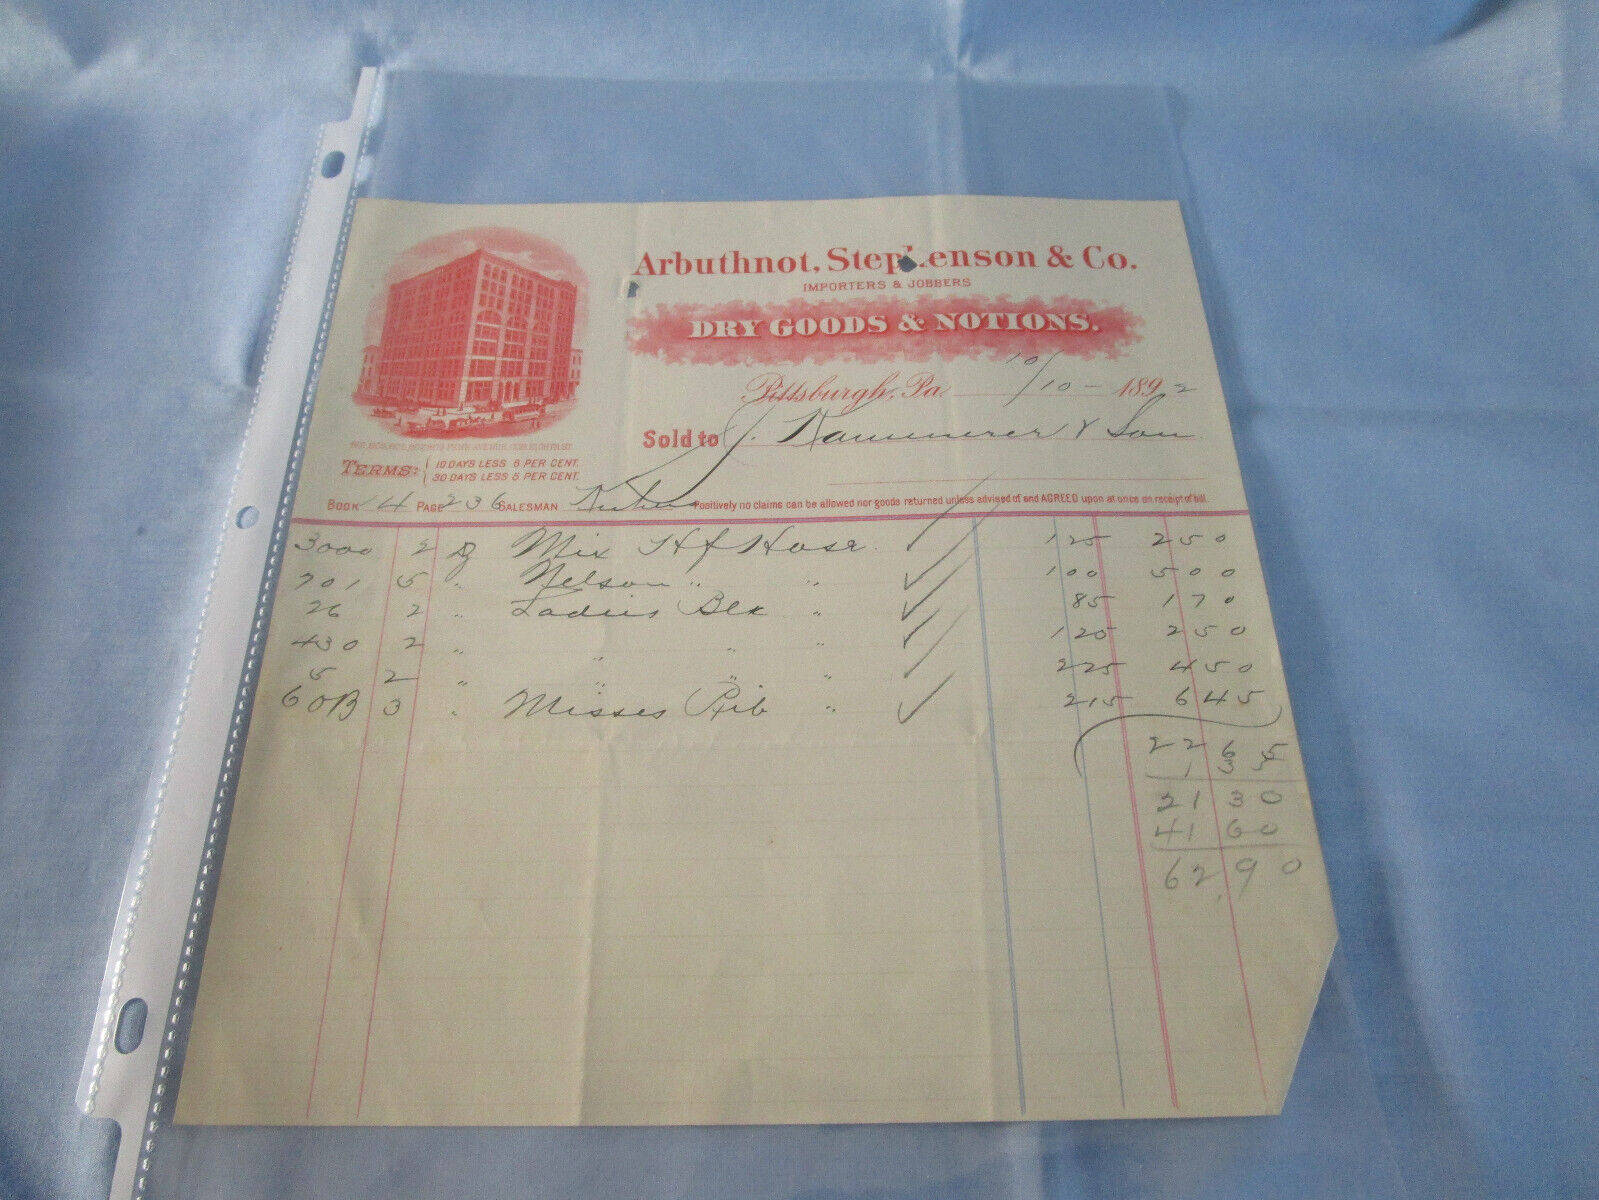 Arbuthnot, Stephenson & Co.
IMPORTERS & JOBBERS
DRY GOODS & NOTIONS.
Pittsburgh, Pa. 10/10 - 1892
Sold to J. Kammerer & Son
TERMS: { 10 DAYS LESS 6 PER CENT.
30 DAYS LESS 5 PER CENT.
BOOK 4 PAGE 236 SALESMAN Positively no claims can be allowed nor goods returned unless advised of and AGREED upon at once on receipt of bill.
3000 2 Mix Hf Hose ✓ 125 250
701 5 " Nelson " " ✓ 100 500
26 2 " Ladies Blk " ✓ 85 170
430 2 " " " " ✓ 125 250
5 2 " " " " ✓ 225 450
60B 3 " Misses Rib " ✓ 215 645
2265
135
2130
4160
62.90